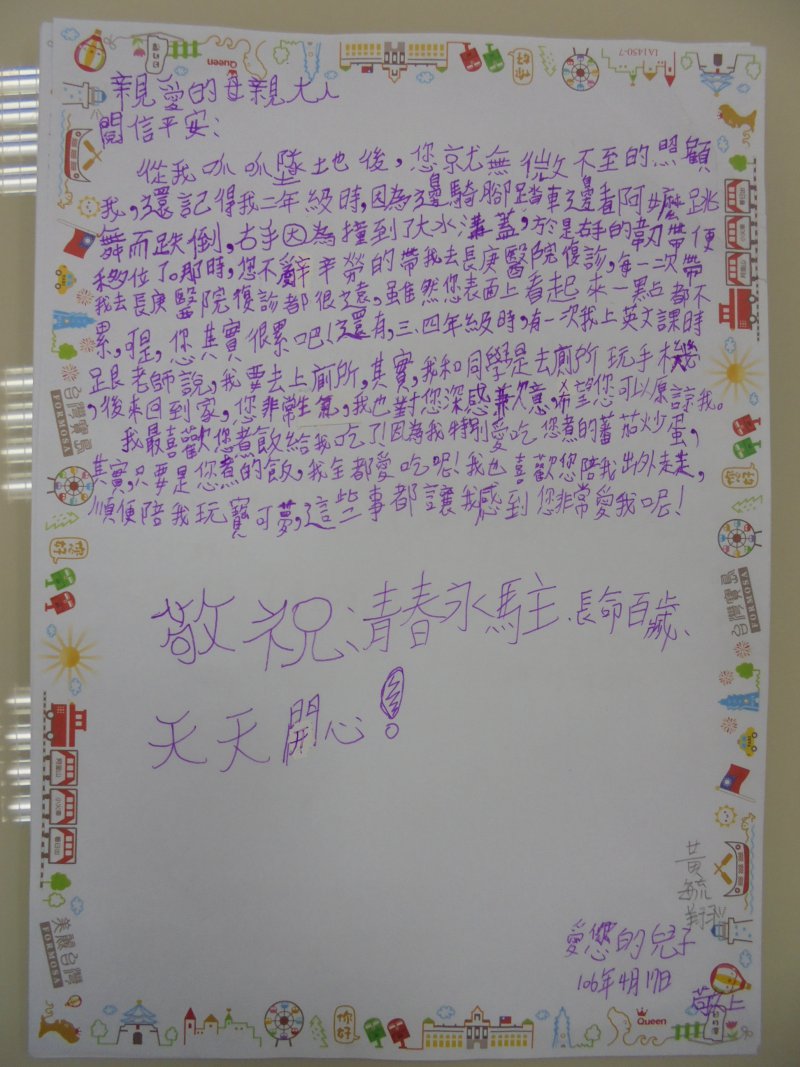 親愛的母親大人
閱信平安:
從我呱呱墜地後,您就無微不至的照顧
我,還記得我二年級時,因為邊騎腳踏車邊看阿嬤跳
舞而跌倒,右手因為撞到了大水溝蓋,於是右手的韌帶便
移位了。那時,您不辭辛勞的帶我去長庚醫院復診,每一次帶
我去長庚醫院復診都很遠,雖然您表面上看起來一點都不
累,可是,您其實很累吧!還有,三、四年級時,有一次我上英文課時
跟老師說,我要去上廁所,其實,我和同學是去廁所玩手機
,後來回到家,您非常生氣,我也對您深感歉意,希望您可以原諒我。
我最喜歡您煮飯給我吃了!因為我特別愛吃您煮的蕃茄炒蛋,
其實,只要是您煮的飯,我全都愛吃呢!我也喜歡您陪我出外走走,
順便陪我玩寶可夢,這些事都讓我感到您非常愛我呢!
敬祝:青春永駐、長命百歲、
天天開心!
黃毓翔
愛您的兒子
106年4月17日
敬上
Queen
你好
IA1450-7
台灣寶島
FORMOSA
你好
美麗台灣
FORMOSA
你好
Queen
台灣寶島
FORMOSA
你好